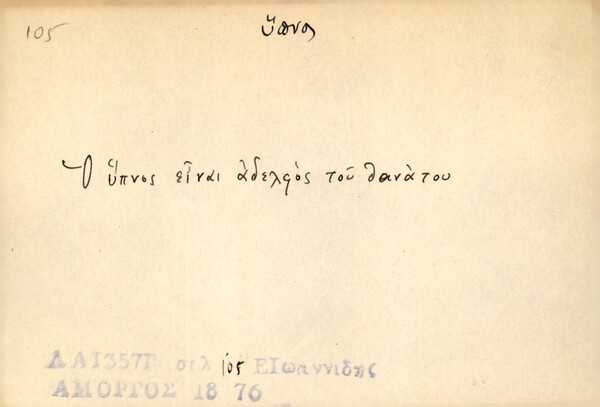 105
ὕπνος
Ὁ ὕπνος εἶναι ἀδελφὸς τοῦ θανάτου
ΛΑ1357Γ σελ 105 ΕΙωαννιδης
ΑΜΟΡΓΟΣ 18 76